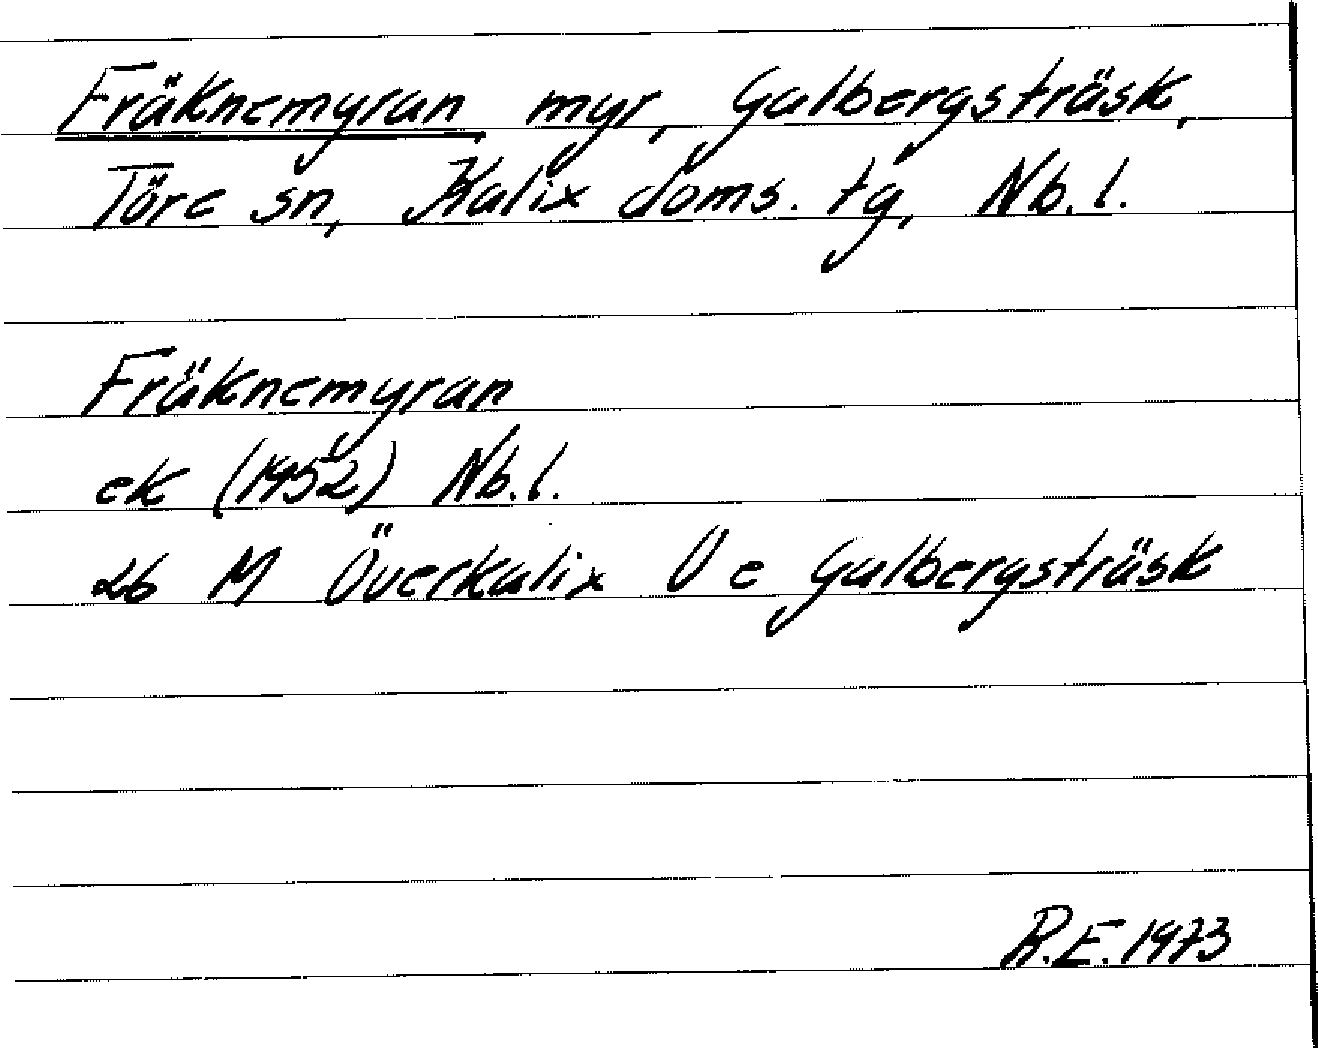 Fräknemyran myr, Galbergsträsk,
Töre sn, Kalix doms. tg, Nb.l.
Fräknemyran
ek (1952) Nb.l.
26 M Överkalix Ö e Galbergsträsk
R.E. 1973